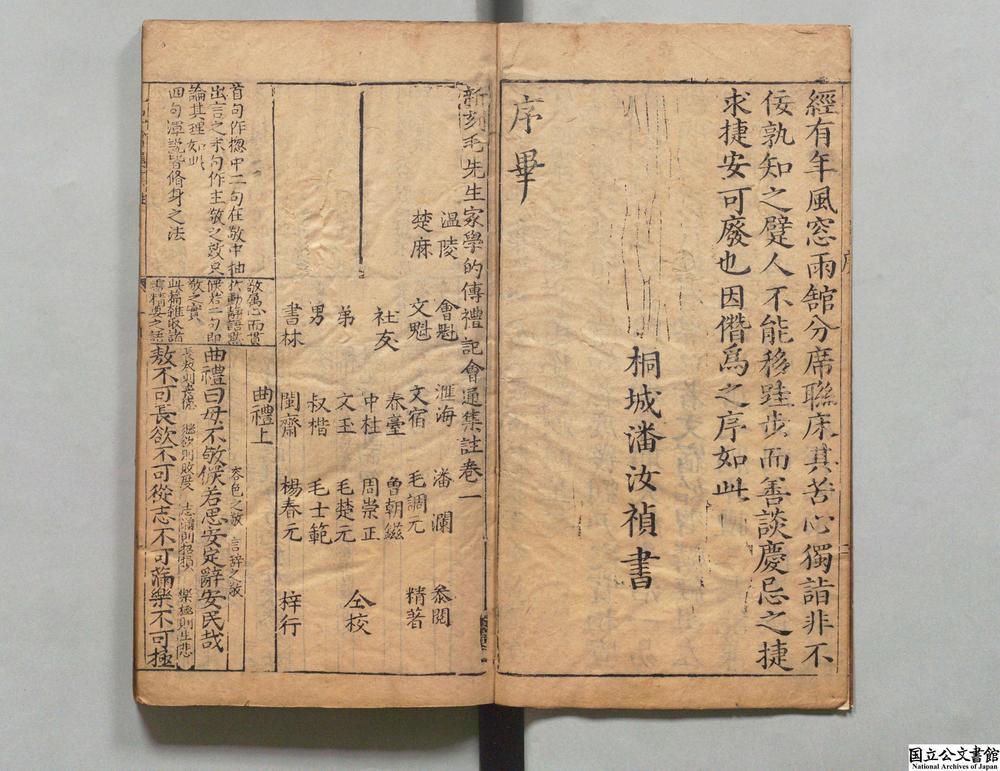 經有年風窓雨舘分席聯床其苦心獨詣非不
佞孰知之躄人不能移跬步而善談慶忌之捷
求捷安可廢也因僭爲之序如此
桐城潘汝禎書
序畢
新刻毛先生家學的傳禮記會通集註卷一
溫陵 會魁 滙海 潘瀾 叅閱
楚麻 文魁 文宿 毛調元 精著
社友 春臺 曾朝滋
中柱 周崇正
弟 文玉 毛楚元 仝校
男 叔楷 毛士範
書林 閩齋 楊春元 梓行
曲禮上
首句作摠中二句在敬中抽
出言之末句作主敬之效只
論其理如此
四句渾說皆脩身之法
敬屬心而貫
於動靜語默
儼若二句即
敬之實
此篇雜取諸
書精要之語
容色之敬 言辭之敬
曲禮曰毋不敬儼若思安定辭安民哉
長敖則喪德 縱欲則敗度 志滿則招損 樂極則生悲
敖不可長欲不可從志不可滿樂不可極
国立公文書館
National Archives of Japan